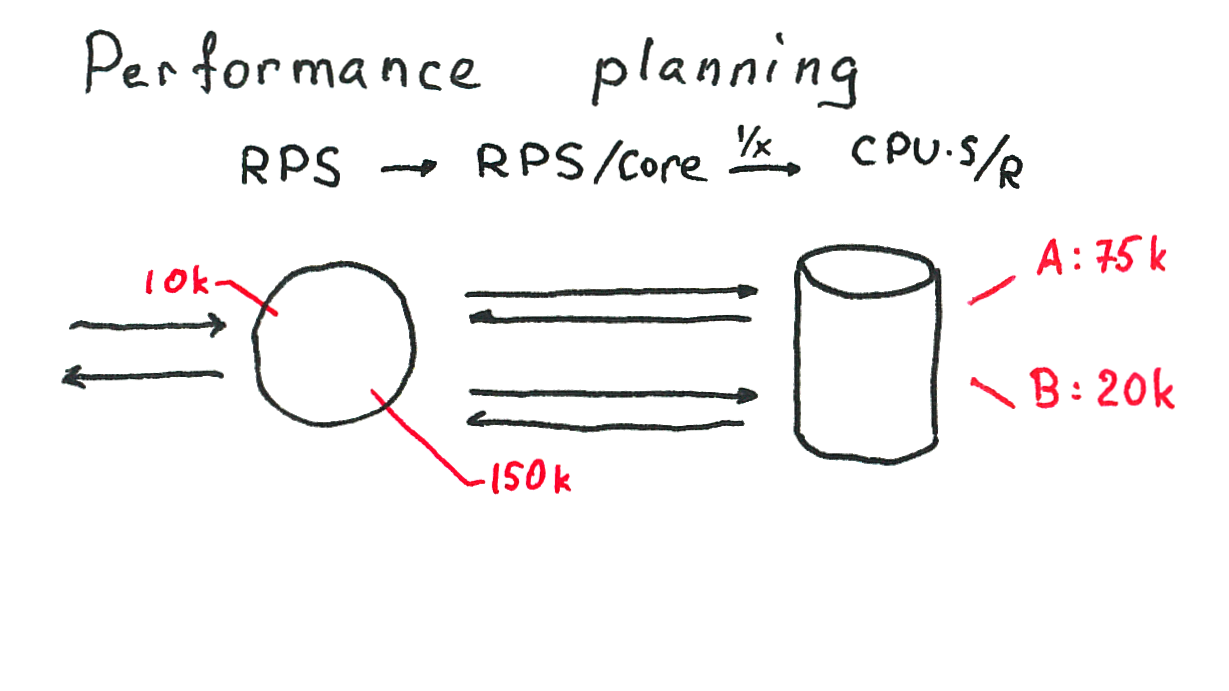 Performance planning
RPS → RPS/Core 1/x → CPU·S/R
10k
A: 75k
B: 20k
150k